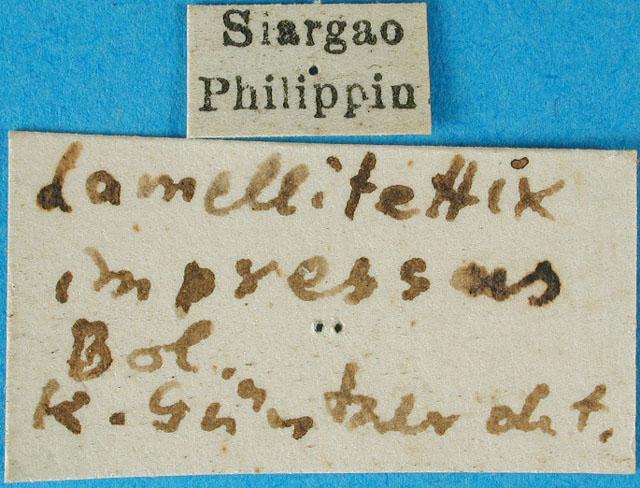 Siargao
Philippin
Lamellitettix
impressus
Bol.
K. Günther det.